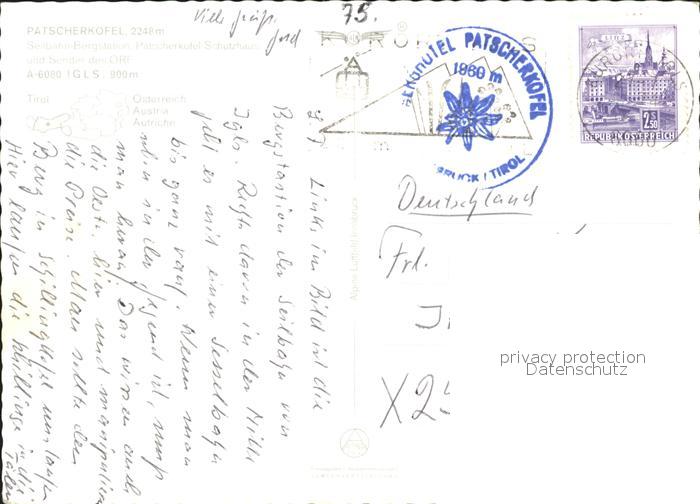 Viele Grüße
75.
PATSCHERKOFEL, 2248 m
Seilbahn-Bergstation, Patscherkofel Schutzhaus
und Sender des ORF
A-6080 IGLS, 900 m
Tirol
Österreich
Austria
Autriche
BERGHOTEL PATSCHERKOFEL
1960 m
INNSBRUCK / TIROL
LINZ
2.50
S
REPUBLIK ÖSTERREICH
Deutschland
Frl.
Links im Bild ist die
Bergstation der Seilbahn von
Igls. Rechts davon in der Mitte
geht es mit einer Sesselbahn
bis ganz rauf. Wenn man
schon in der Gegend ist, muß
man hinauf. Das wissen auch
die Oestr. hier und manipulieren
die Preise. Man sollte den
Berg in Schillingkofel umtaufen
Hier laufen die Schillinge in die
Täler
Alpine Luftbild Innsbruck
privacy protection
Datenschutz